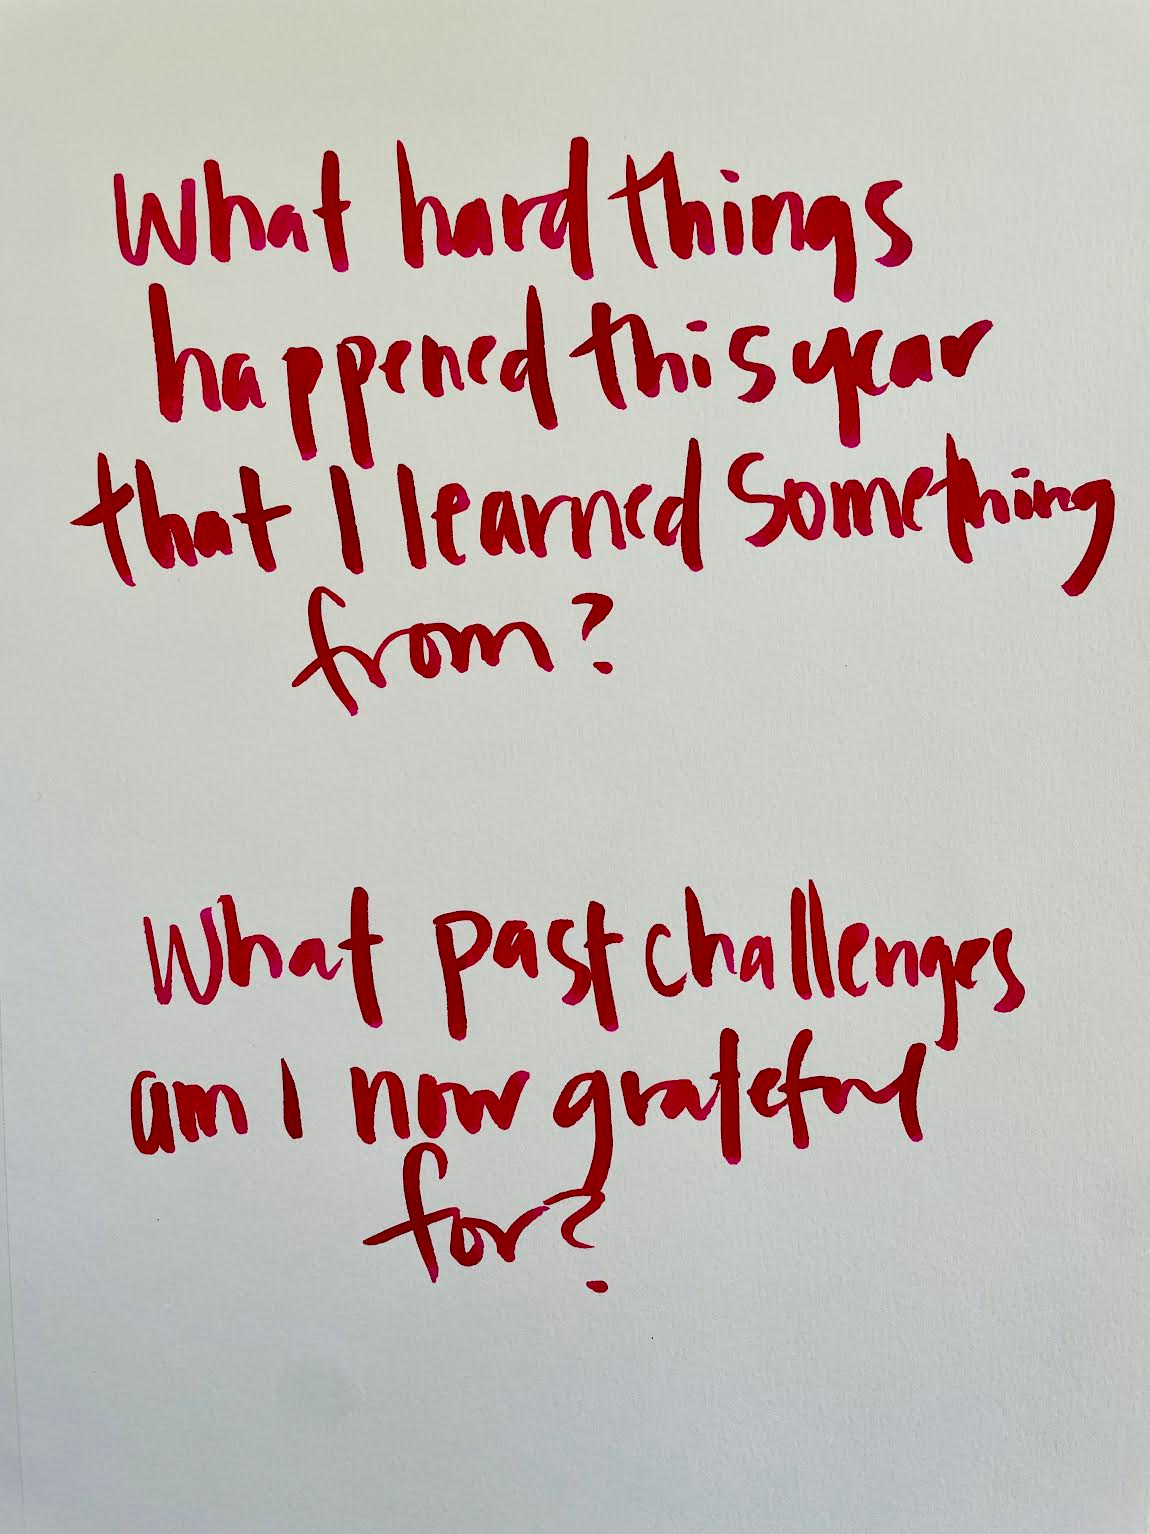 What hard things
happened this year
that I learned something
from?
What past challenges
am I now grateful
for?